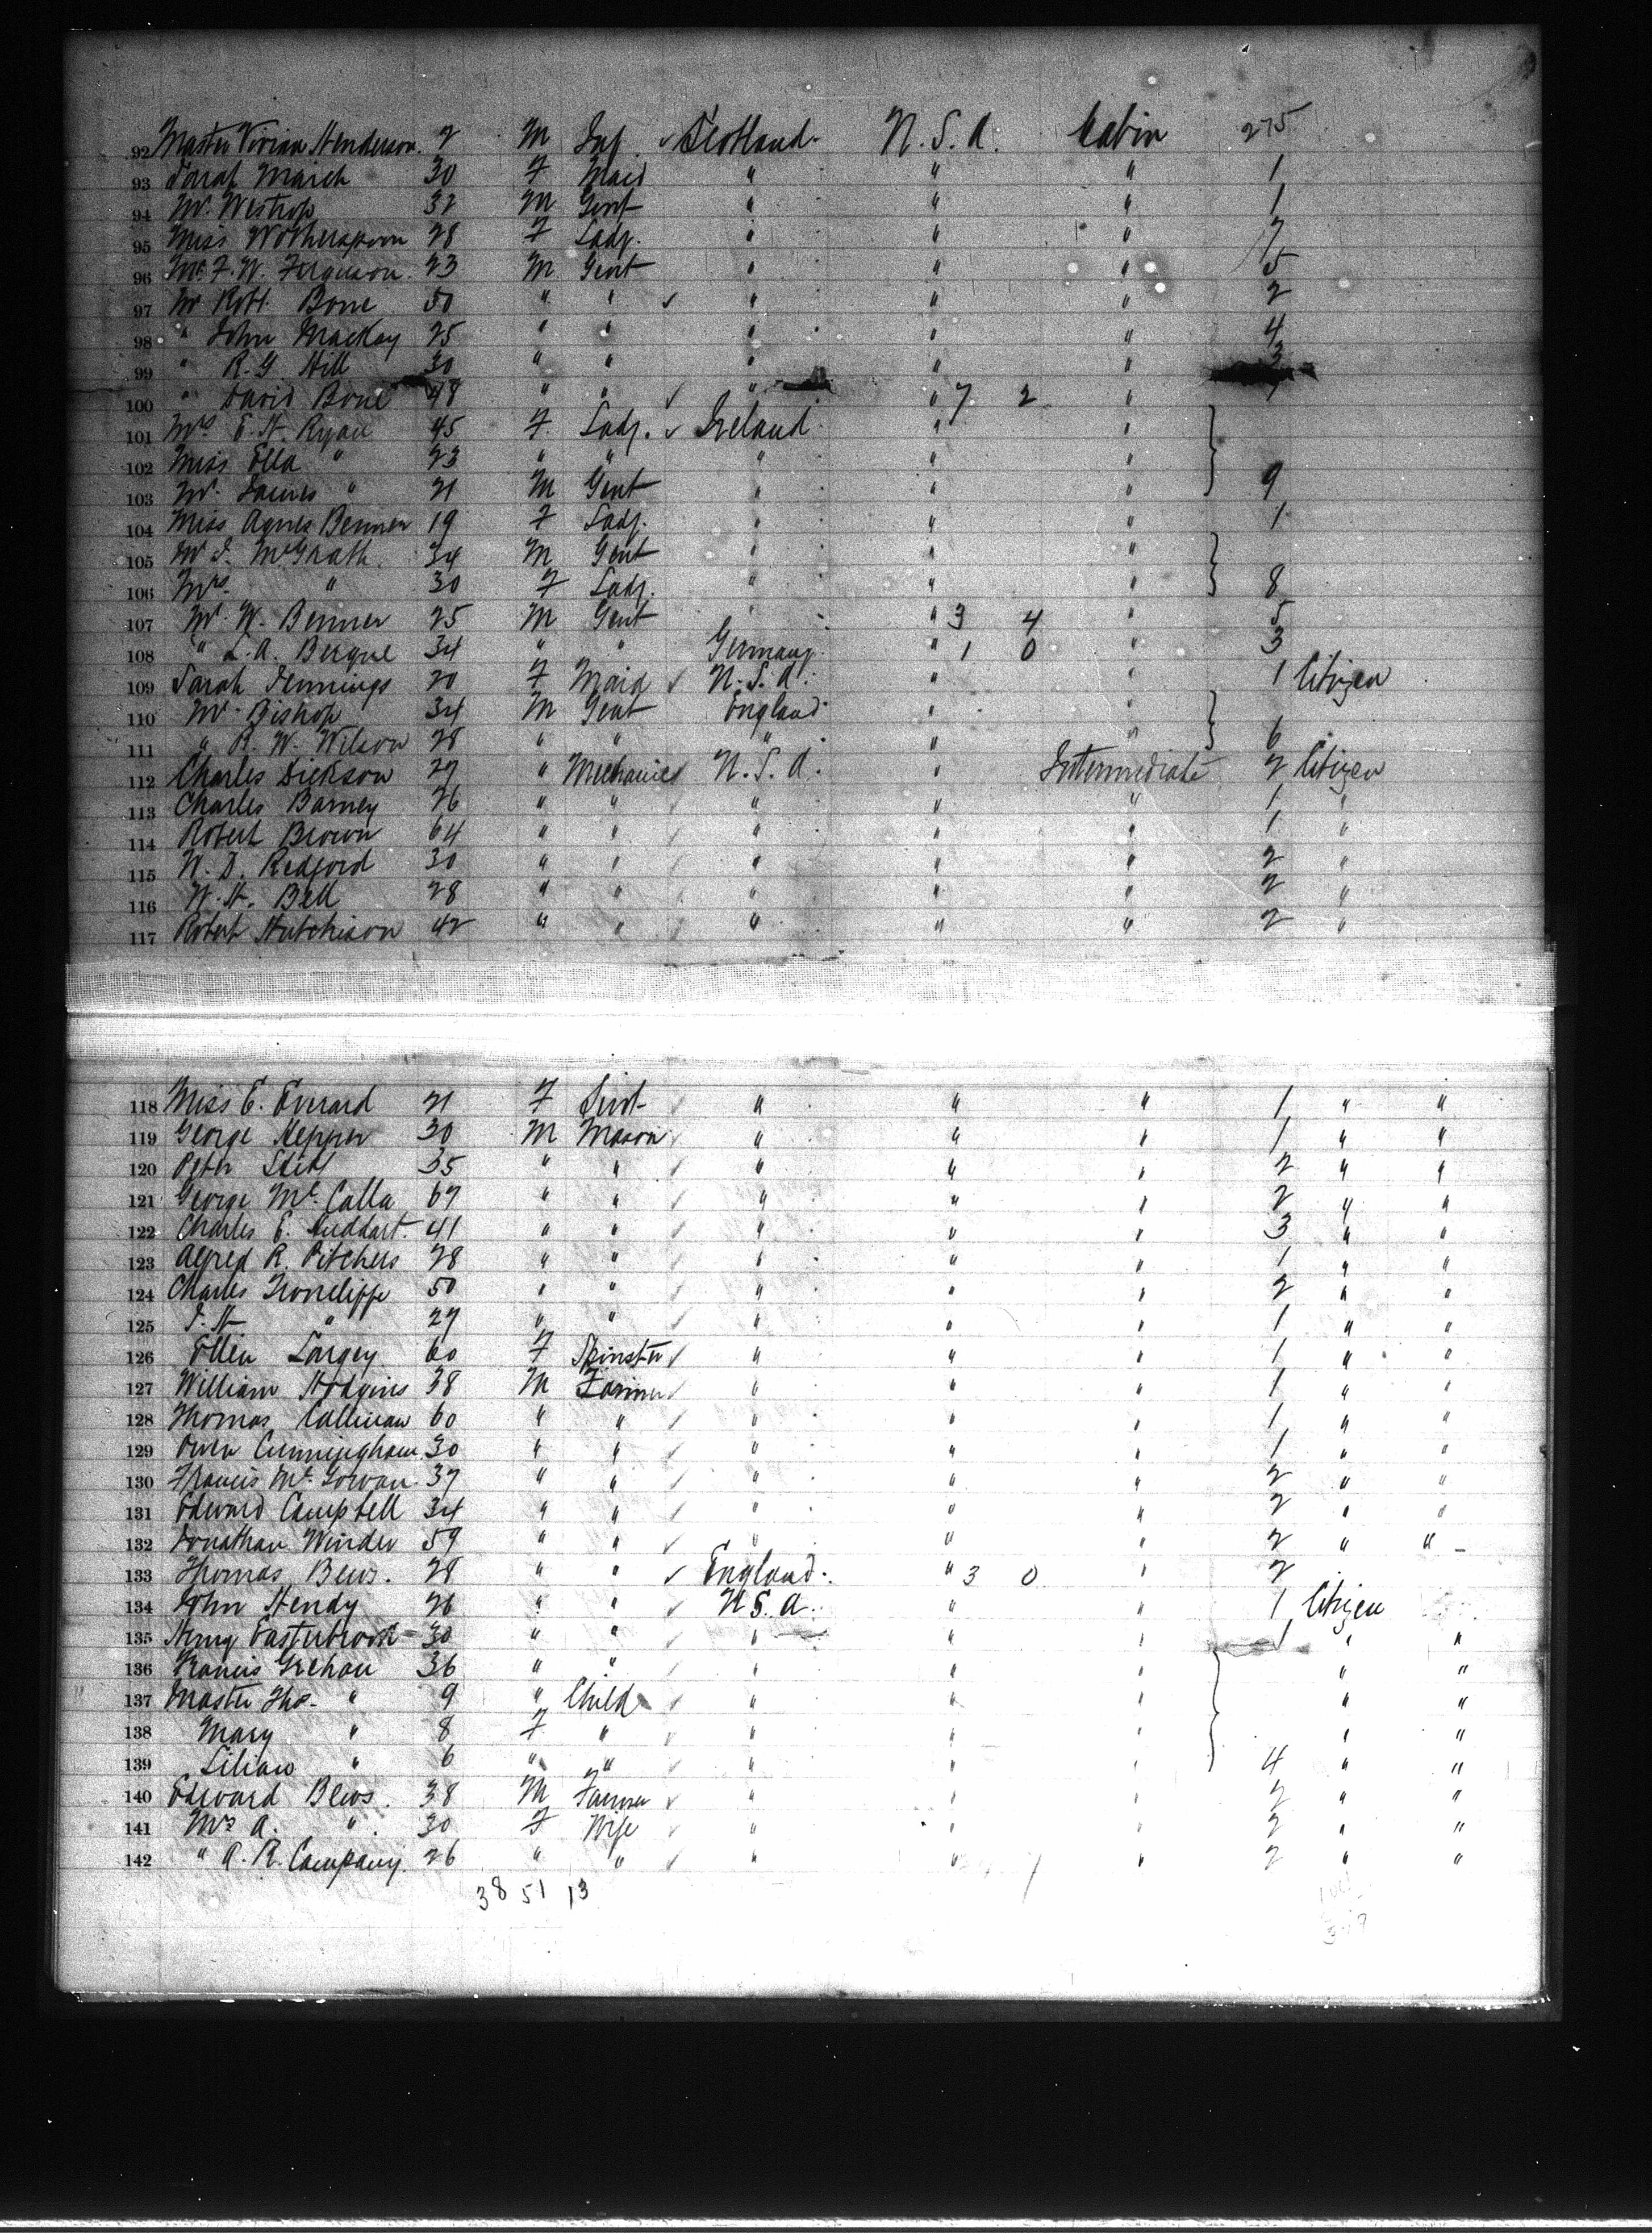 92 Master Vivian Henderson. 2 M Inf. ✓ Scotland. U.S.A. Cabin 275
93 Sarah March 30 F Maid " " " 1
94 Mr. Westrop 32 M Gent " " " 1
95 Miss Wotherspoon 28 F Lady. " " " 7
96 Mr. F. W. Ferguson. 23 M Gent " " " 5
97 Mr Robt. Bone 50 " " ✓ " " " 2
98 " John Mackay 25 " " " " " 4
99 " R. G. Hill 30 " " " " " 3
100 " David Bone 48 " " ✓ " " 7 2 "
101 Mrs E. H. Ryan 45 F. Lady. ✓ Ireland. " "
102 Miss Ella " 23 " " " " "
103 Mr. James " 21 M Gent " " " 9
104 Miss Agnes Benner 19 F Lady. " " " 1
105 Mr J. McGrath. 34 M Gent " " "
106 Mrs. " 30 F Lady. " " " 8
107 Mr. W. Benner 25 M Gent " " 3 4 " 5
108 " L. A. Bergne 34 " " Germany. " 1 0 " 3
109 Sarah Jennings 20 F Maid ✓ U.S.A. " " 1 Citizen
110 Mr Bishop 34 M Gent England " "
111 " R. W. Wilson 28 " " " " " 6
112 Charles Dickson 27 " Mechanic ✓ U.S.A. " Intermediate 2 Citizen
113 Charles Barney 26 " " ✓ " " " 1 "
114 Robert Brown 64 " " ✓ " " " 1 "
115 W. D. Redford 30 " " ✓ " " " 2 "
116 W. H. Bell 28 " " ✓ " " " 2 "
117 Robert Hutchison 42 " " ✓ " " " 2 "
118 Miss E. Everard 21 F Servt ✓ " " " 1 " "
119 George Hepper 30 M Mason ✓ " " " 1 " "
120 Peter 35 " " ✓ " " " 2 " "
121 George Mc. Calla 67 " " ✓ " " " 2 " "
122 Charles E. Huddart. 41 " " ✓ " " " 3 " "
123 Alfred R. Pitchers 28 " " ✓ " " " 1 " "
124 Charles Troncliffe 50 " " ✓ " " " 2 " "
125 J. H " 27 " " ✓ " " " 1 " "
126 Ellen Largey 60 F Spinster ✓ " " " 1 " "
127 William Hodgins 38 M Farmer ✓ " " " 1 " "
128 Thomas Callinan 60 " " ✓ " " " 1 " "
129 Owen Cunningham. 30 " " ✓ " " " 1 " "
130 Francis Mc. Gowan. 37 " " ✓ " " " 2 " "
131 Edward Campbell 34 " " ✓ " " " 2 " "
132 Jonathan Winder 59 " " ✓ " " " 2 " "
133 Thomas Bews. 28 " " ✓ England. " 3 0 " 2
134 John Hendy 26 " " U.S.A. " " 1 Citizen
135 Henry Easterbrook 30 " " ✓ " " " 1 " "
136 Francis Grehan 36 " " ✓ " " " " "
137 Master Tho. " 9 " Child ✓ " " " " "
138 Mary " 8 F " ✓ " " " " "
139 Lilian " 6 " " ✓ " " " 4 " "
140 Edward Bews. 38 M Farmer ✓ " " " 2 " "
141 Mrs A. " 30 F Wife ✓ " " " 2 " "
142 " A. R. Company. 26 " " ✓ " " " 2 " "
38 51 13